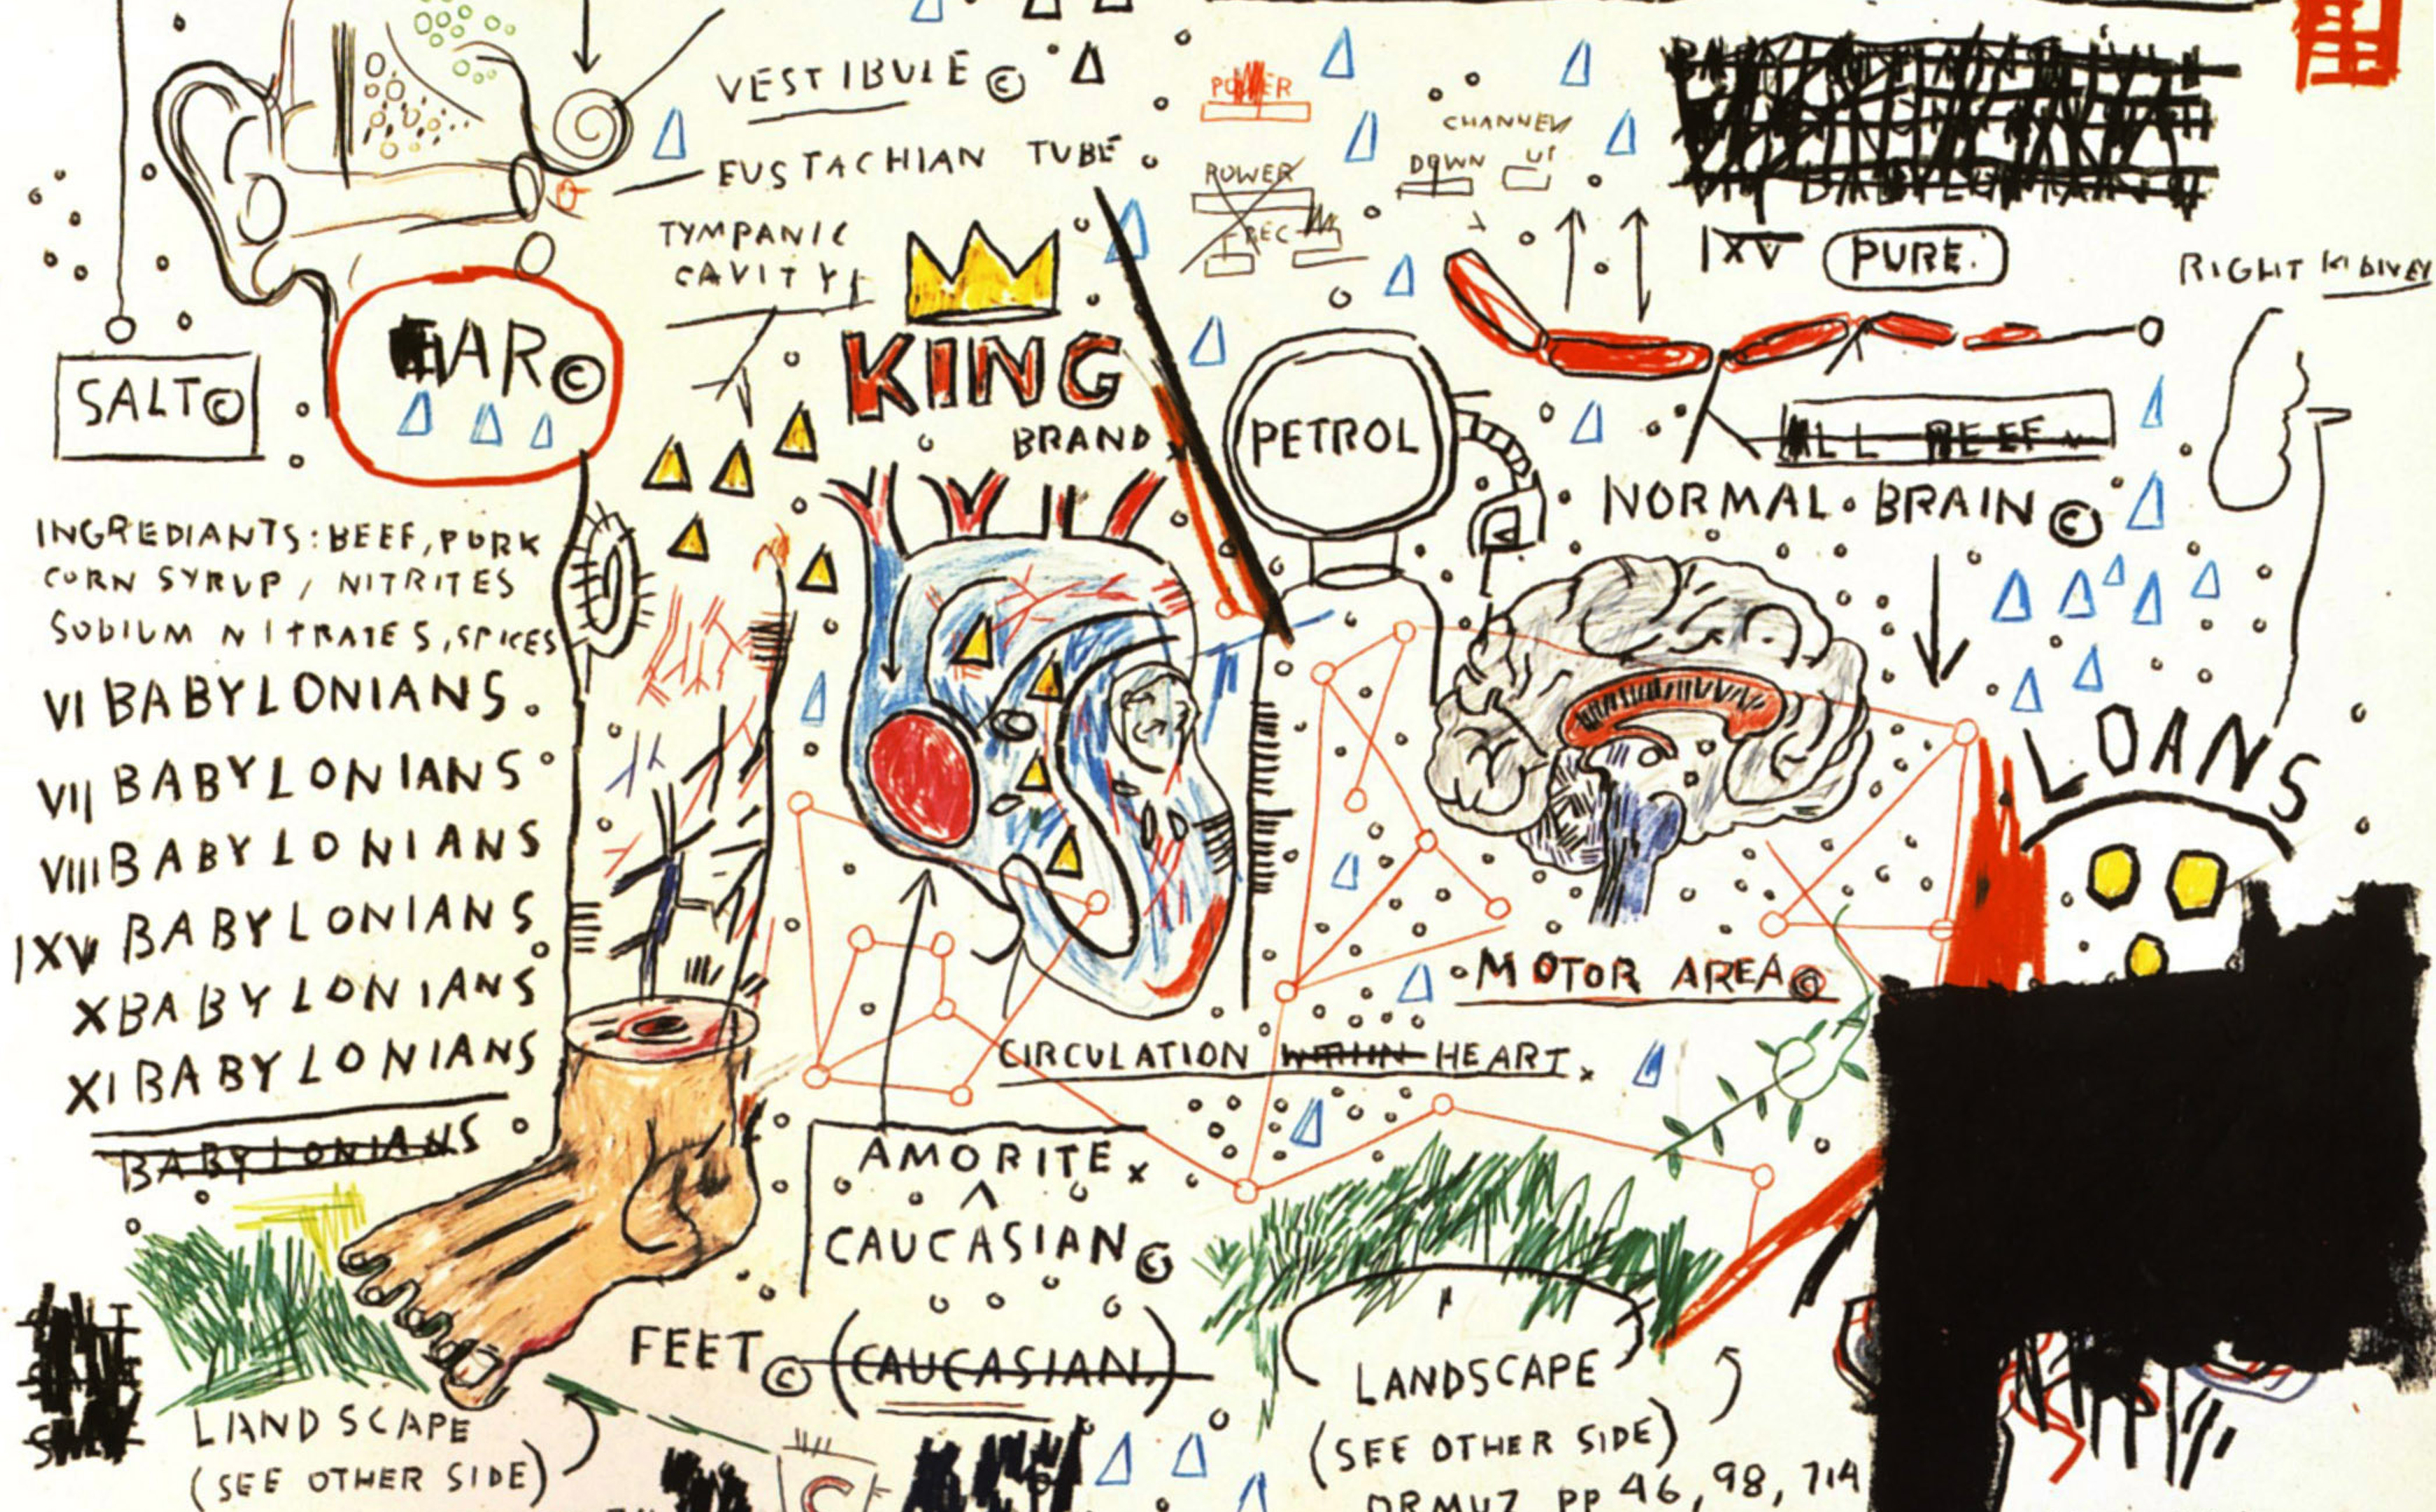 VESTIBULE ©
EUSTACHIAN TUBE
TYMPANIC
CAVITY
POWER
CHANNEL
DOWN UP
POWER
REC
BABYLONIANS
IXV PURE.
RIGHT KIDNEY
SALT ©
EAR ©
KING
BRAND
PETROL
ALL BEEF
NORMAL BRAIN ©
INGREDIANTS: BEEF, PORK
CORN SYRUP, NITRITES
SODIUM NITRATES, SPICES
VI BABYLONIANS.
VII BABYLONIANS
VIII BABYLONIANS
IXV BABYLONIANS
X BABYLONIANS
XI BABYLONIANS
BABYLONIANS
LOANS
MOTOR AREA ©
CIRCULATION WITHIN HEART
AMORITE
CAUCASIAN ©
FEET © (CAUCASIAN)
LANDSCAPE
(SEE OTHER SIDE)
LANDSCAPE
(SEE OTHER SIDE)
ORMUZ PP 46, 98, 714